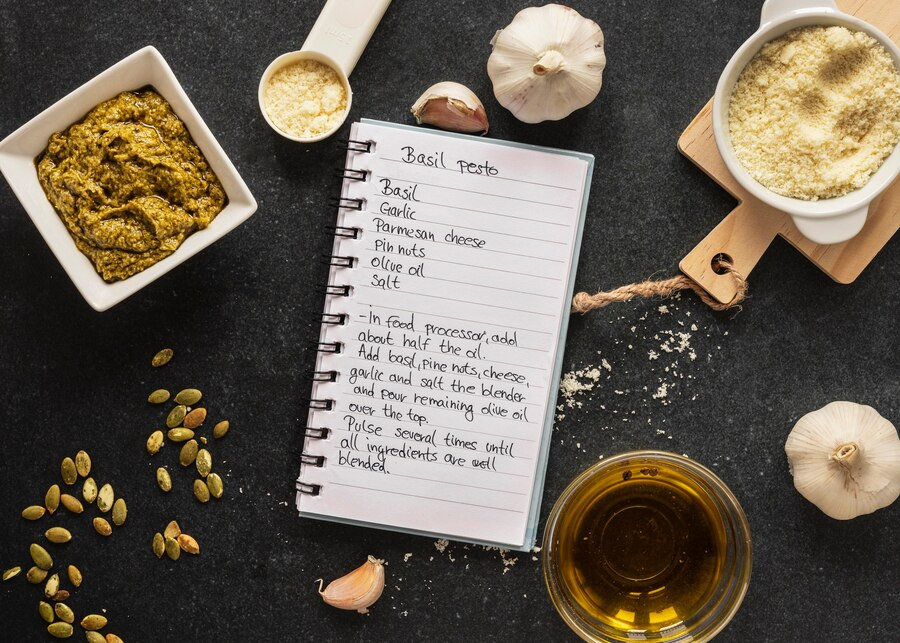 Basil pesto
Basil
Garlic
Parmesan cheese
Pin nuts
Olive oil
Salt
-In food processor, add
about half the oil.
Add basil, pine nuts, cheese,
garlic and salt the blender
and pour remaining olive oil
over the top.
Pulse several times until
all ingredients are well
blended.